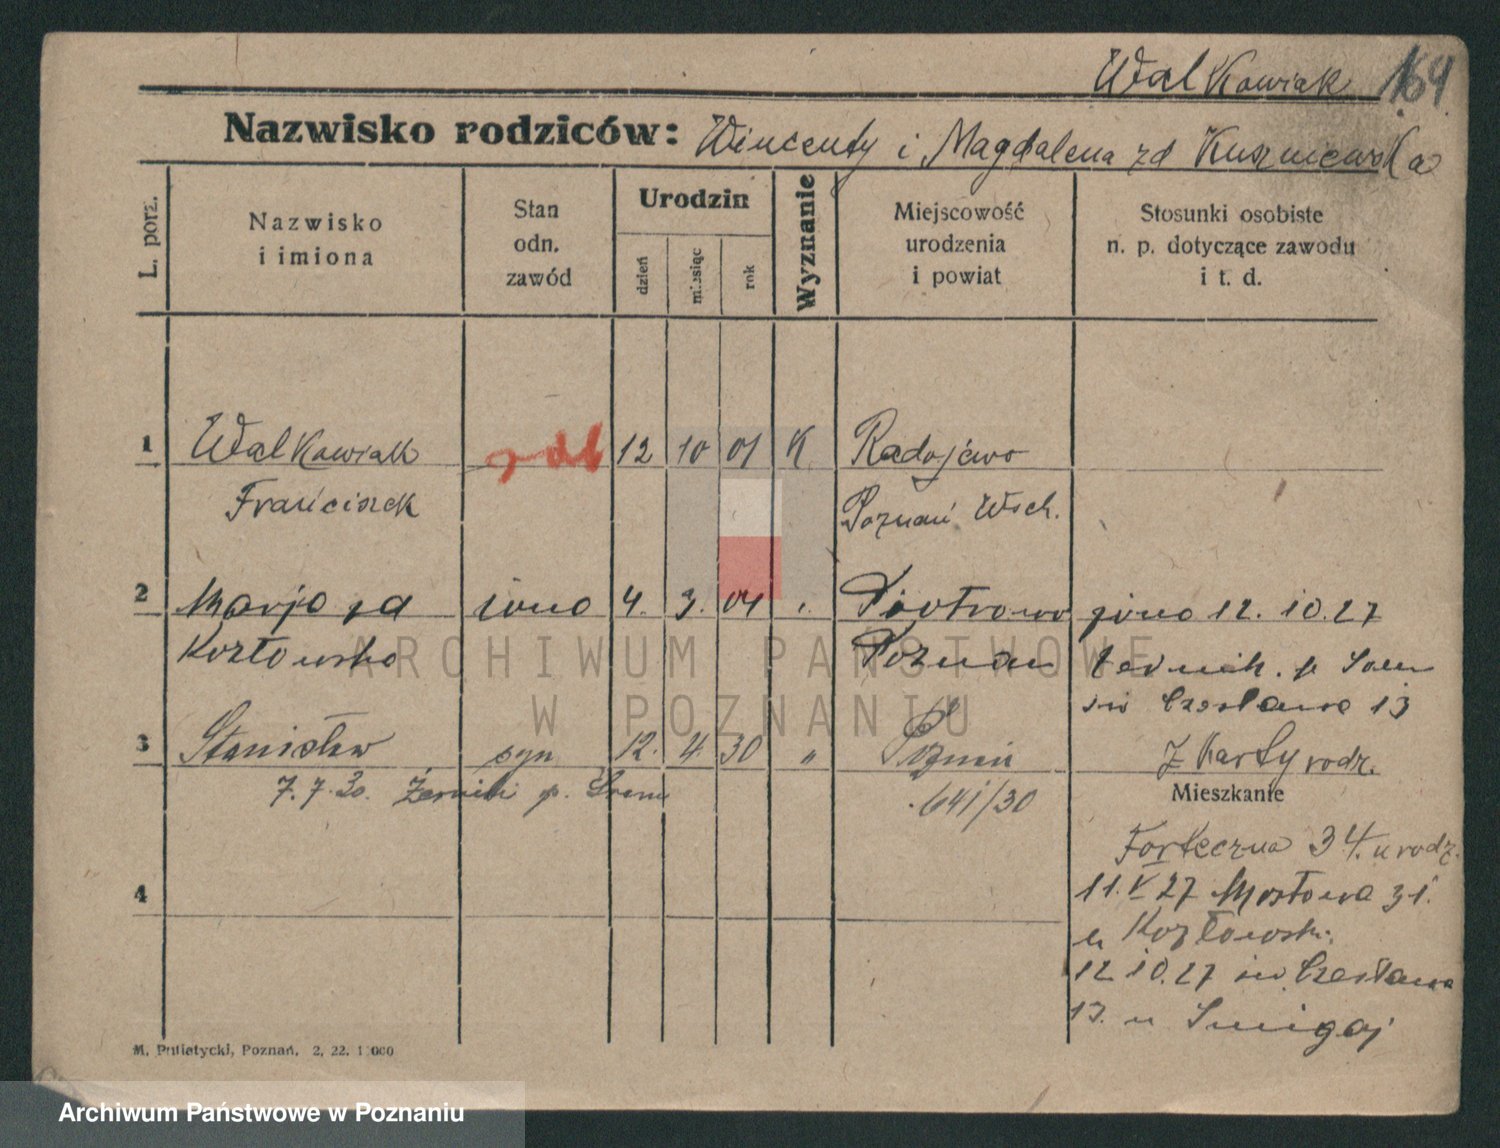 Walkowiak 164
Nazwisko rodziców: Wincenty i Magdalena zd Kuszniewska
L. porz.
Nazwisko i imiona
Stan odn. zawód
Urodzin
dzień miesiąc rok
Wyznanie
Miejscowość urodzenia i powiat
Stosunki osobiste n. p. dotyczące zawodu i t. d.
1 Walkowiak 12 10 01 K Radojewo
Franciszek Poznań Wsch.
2 Marja zd żona 4. 3. 04 Piotrowo 12. 10. 27
Kozłowska Poznań
św Czesława 13
3 Stanisław syn 12. 4. 30 " Poznań z karty rodz.
7.7.30. Żerniki p. Śrem 641/30
Mieszkanie
Forteczna 34. u rodz.
11. V 27 Mostowa 31.
4
u Kozłowski
12 10. 27 św. Czesława
13. u Śmigaj
M. Putiatycki, Poznań, 2, 22. 1000
ARCHIWUM PAŃSTWOWE
W POZNANIU
Archiwum Państwowe w Poznaniu